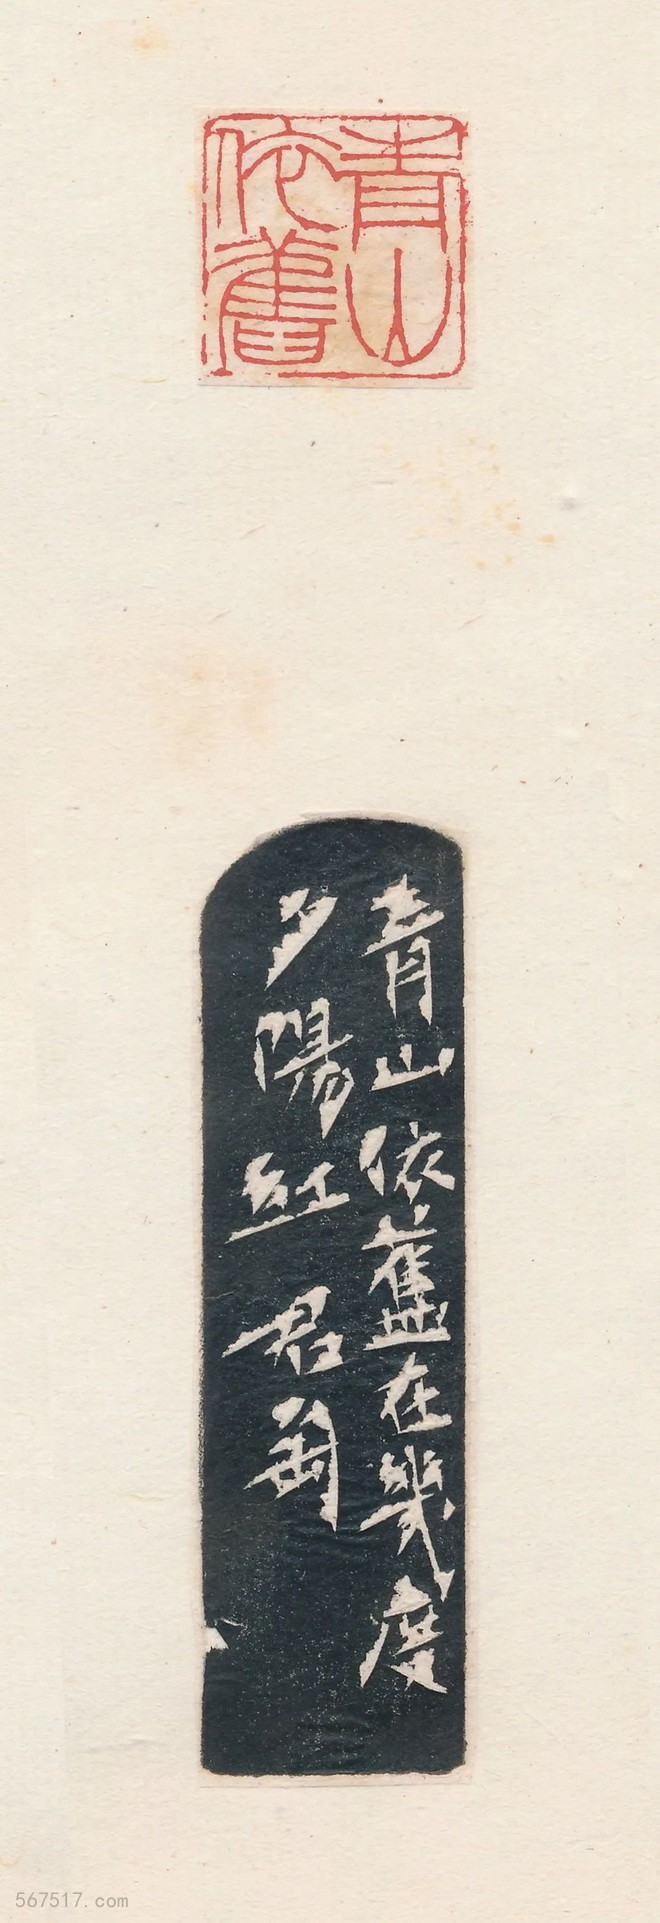 青山
依舊
青山依舊在幾度
夕陽紅君匋
567517.com